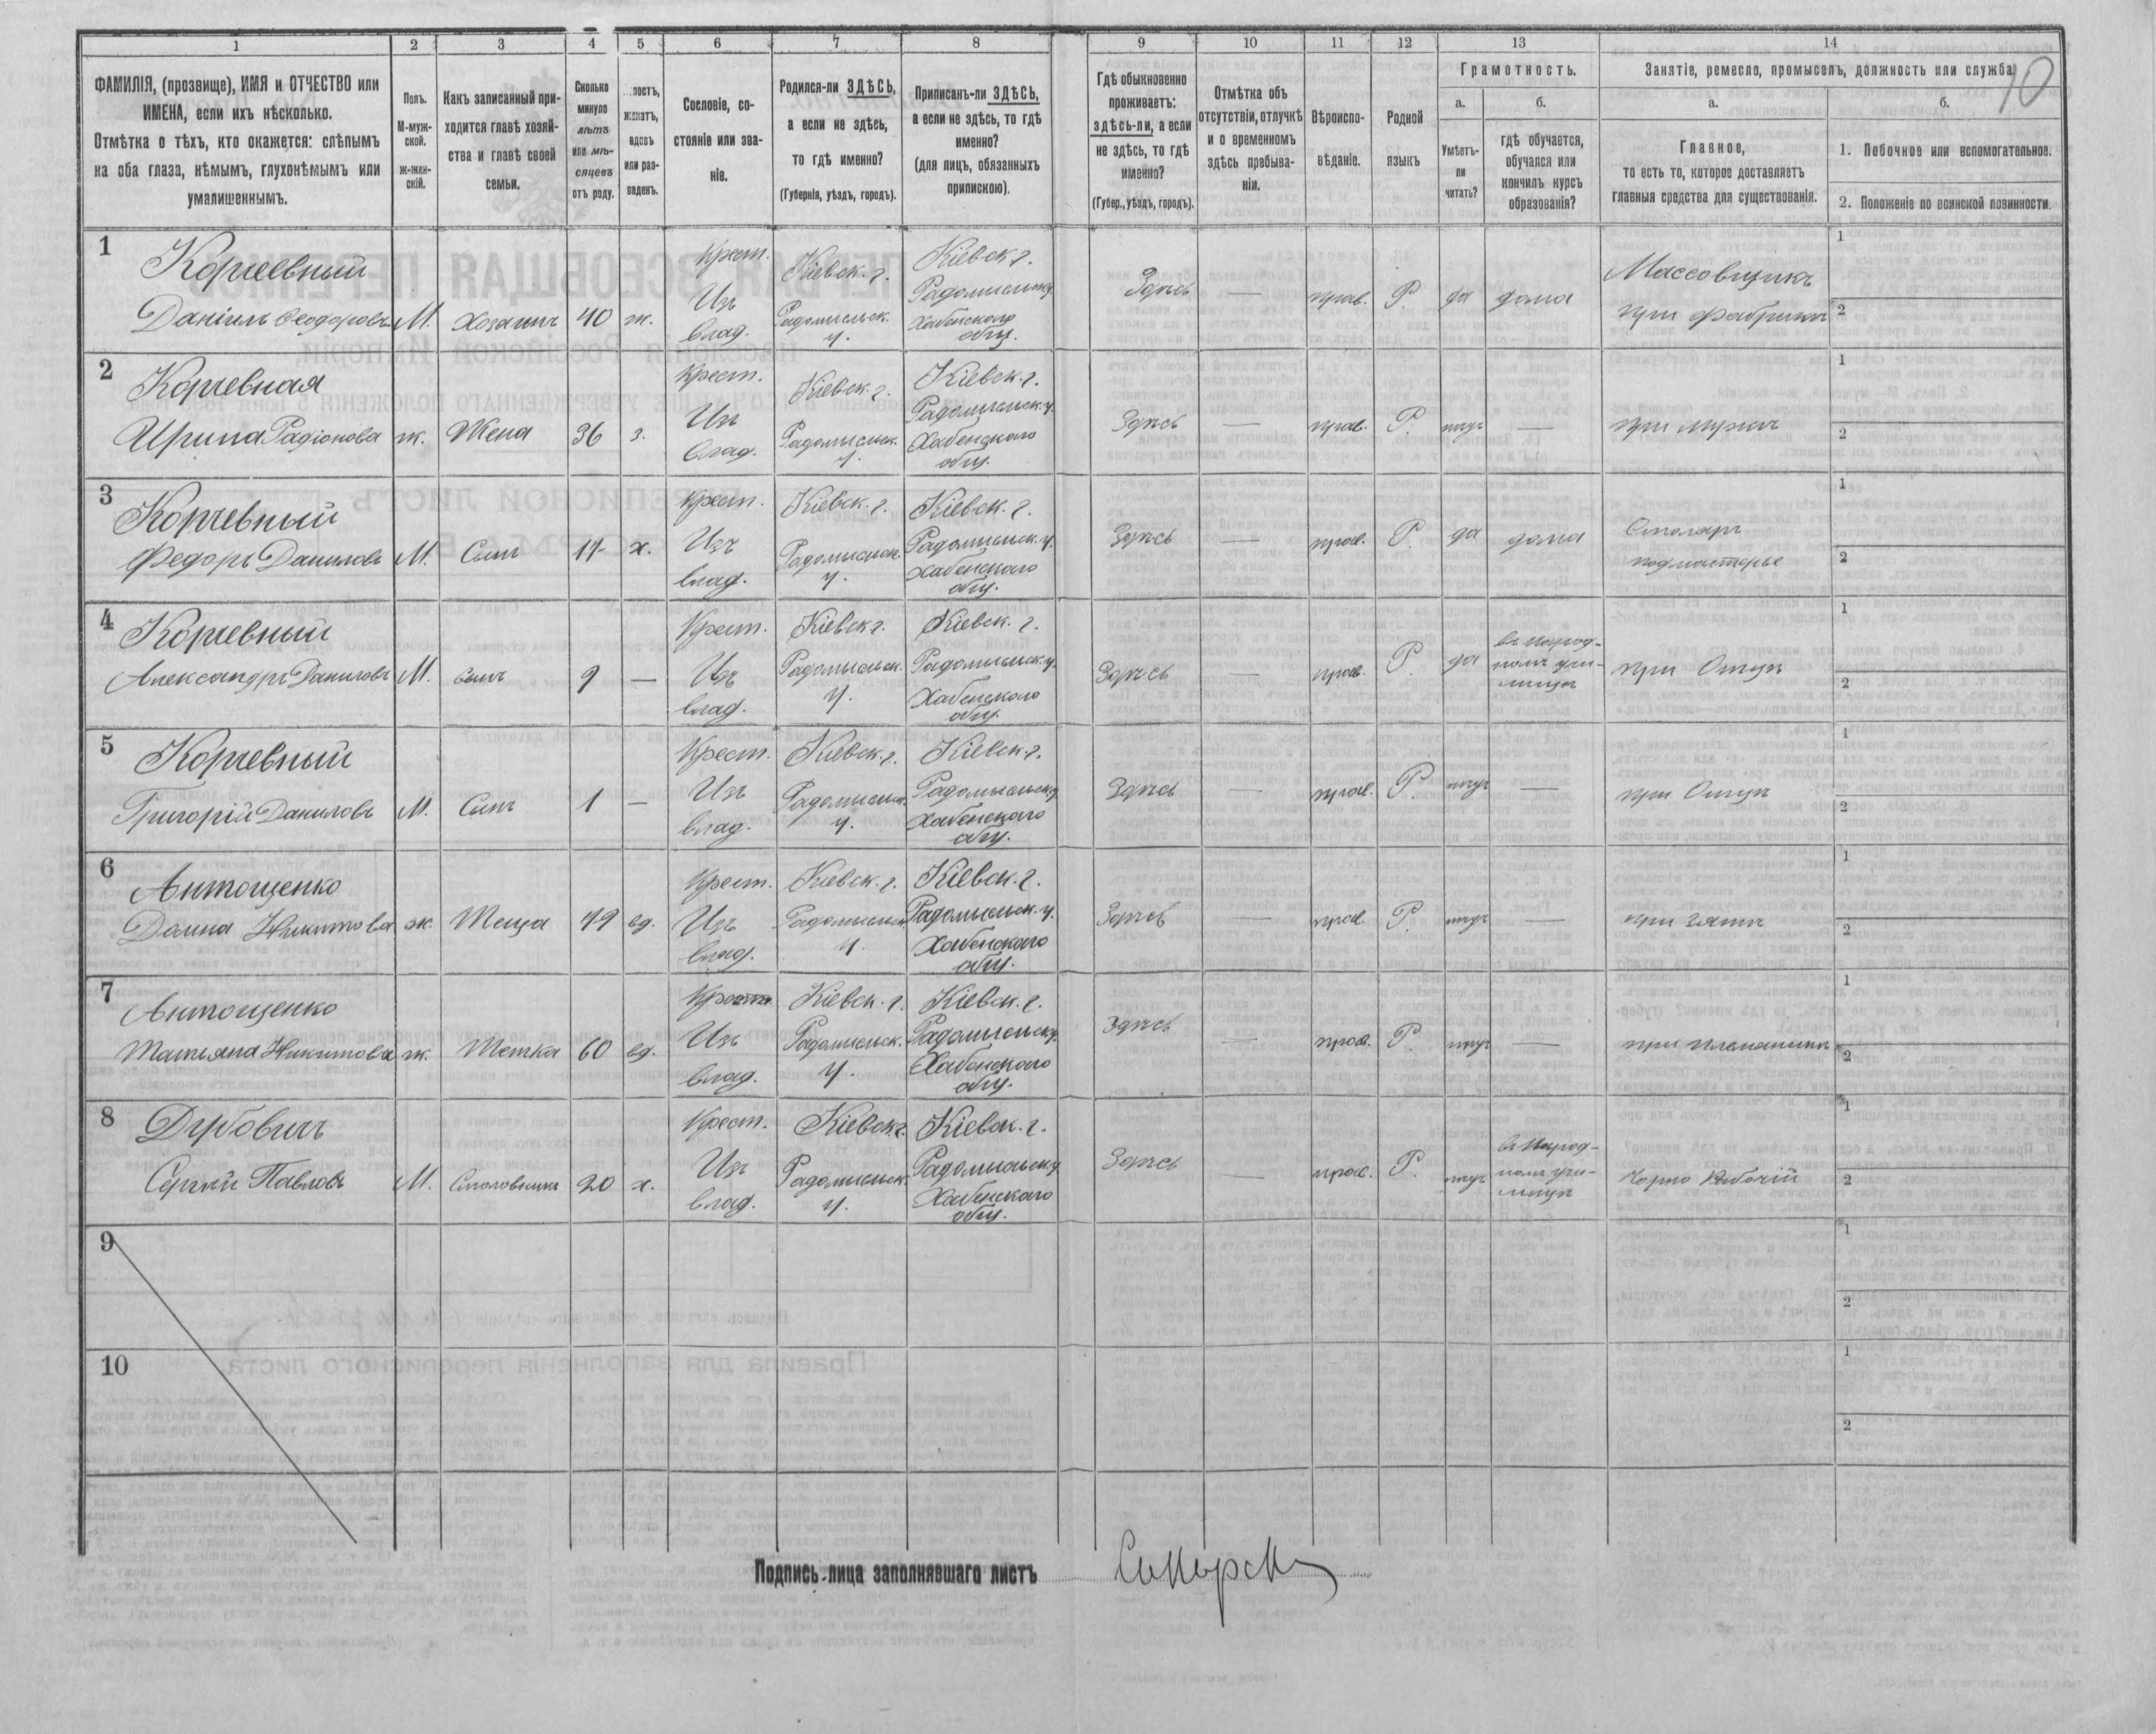 10
1 2 3 4 5 6 7 8 9 10 11 12 13 14
ФАМИЛІЯ, (прозвище), ИМЯ и ОТЧЕСТВО или
ИМЕНА, если ихъ нѣсколько.
Отмѣтка о тѣхъ, кто окажется: слѣпымъ
на оба глаза, нѣмымъ, глухонѣмымъ или
умалишеннымъ.
Полъ.
М-муж-
ской.
ж-жен-
скій.
Какъ записанный при-
ходится главѣ хозяй-
ства и главѣ своей
семьи.
Сколько
минуло
лѣтъ
или мѣ-
сяцевъ
отъ роду.
лостъ,
женатъ,
вдовъ
или раз-
веденъ.
Сословіе, со-
стояніе или зва-
ніе.
Родился-ли ЗДѢСЬ,
а если не здѣсь,
то гдѣ именно?
(Губернія, уѣздъ, городъ).
Приписанъ-ли ЗДѢСЬ,
а если не здѣсь, то гдѣ
именно?
(для лицъ, обязанныхъ
припискою).
Гдѣ обыкновенно
проживаетъ:
здѣсь-ли, а если
не здѣсь, то гдѣ
именно?
(Губер., уѣздъ, городъ).
Отмѣтка объ
отсутствіи, отлучкѣ
и о временномъ
здѣсь пребыва-
ніи.
Вѣроиспо-
вѣданіе.
Родной
языкъ
Грамотность.
а.
Умѣетъ-
ли
читать?
б.
гдѣ обучается,
обучался или
кончилъ курсъ
образованія?
Занятіе, ремесло, промыселъ, должность или служба.
а.
Главное,
то есть то, которое доставляетъ
главныя средства для существованія.
б.
1. Побочное или вспомогательное.
2. Положеніе по воинской повинности.
1 Корчевный Крест. Кіевск. г. Кіевск г. Массовщикъ 1
Даніилъ Ѳеодоровъ М. Хозяинъ 40 ж. Изъ влад. Радомысльск. у. Радомысльск у. Хабенского общ. Здѣсь — прав. Р. да дома при фабрикѣ 2
2 Корчевная Крест. Кіевск. г. Кіевск. г. 1
Ирина Радіонова ж. Жена 36 з. Изъ влад. Радомысльск. у. Радомысльск. у. Хабенского общ. Здѣсь — прав. Р. нѣтъ — при мужѣ 2
3 Корчевный Крест. Кіевск. г. Кіевск. г. Столяръ 1
Федоръ Даниловъ М. Сынъ х. Изъ влад. Радомысльск. у. Радомысльск. у. Хабенского общ. Здѣсь — прав. Р. да дома подмастерье 2
4 Корчевный Крест. Кіевск г. Кіевск. г. 1
Александръ Даниловъ М. Сынъ 9 — Изъ влад. Радомысльск. у. Радомысльск. у. Хабенского общ. Здѣсь — прав. Р. да въ народ- номъ учи- лищѣ при Отцѣ 2
5 Корчевный Крест. Кіевск. г. Кіевск. г. 1
Григорій Даниловъ М. Сынъ 1 — Изъ влад. Радомысльск. у. Радомысльск у. Хабенского общ. Здѣсь — прав. Р. нѣтъ — при Отцѣ 2
6 Антощенко Крест. Кіевск. г. Кіевск. г. 1
Домна Никитова ж. Теща 49 вд. Изъ влад. Радомысльск. у. Радомысльск. у. Хабенского общ. Здѣсь — прав. Р. нѣтъ — при зятѣ 2
7 Антощенко Крест. Кіевск. г. Кіевск. г. 1
Татьяна Никитова ж. Тетка 60 вд. Изъ влад. Радомысльск. у. Радомысльск у. Хабенского общ. Здѣсь прав. Р. нѣтъ — при племянникѣ 2
8 Дубовичъ Крест. Кіевск г. Кіевск. г. 1
Сергѣй Павловъ М. Столовникъ 20 х. Изъ влад. Радомысльск. у. Радомысльск у. Хабенского общ. Здѣсь — прав. Р. нѣтъ въ Народ- номъ учи- лищѣ Чорно Рабочій 2
9 1
2
10 1
2
Подпись лица заполнявшаго листъ